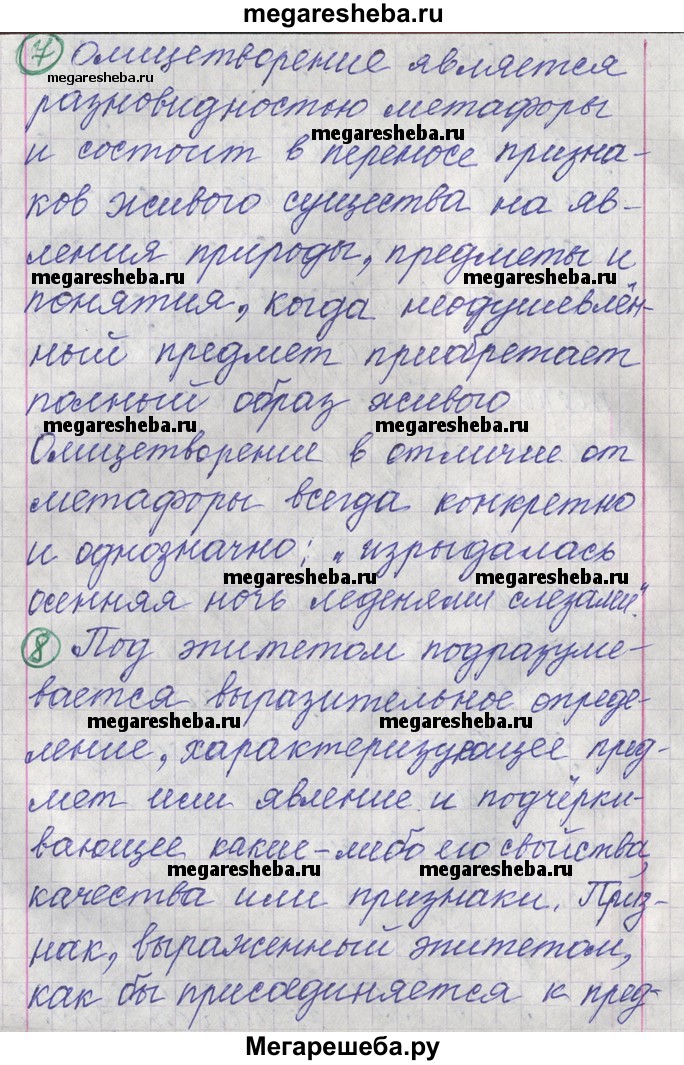 megaresheba.ru
7 Олицетворение является
megaresheba.ru
разновидностью метафоры
megaresheba.ru
и состоит в переносе призна-
ков живого существа на яв-
ления природы, предметы и
megaresheba.ru megaresheba.ru
понятия, когда неодушевлён-
ный предмет приобретает
полный образ живого
megaresheba.ru megaresheba.ru
Олицетворение в отличие от
метафоры всегда конкретно
и однозначно: „изрыдалась
megaresheba.ru megaresheba.ru
осенняя ночь ледяными слезами".
8 Под эпитетом подразуме-
вается выразительное опреде-
megaresheba.ru megaresheba.ru
ление, характеризующее пред-
мет или явление и подчёрки-
вающее какие-либо его свойства,
megaresheba.ru megaresheba.ru
качества или признаки. Приз-
нак, выраженный эпитетом,
как бы присоединяется к пред-
Мегарешеба.ру